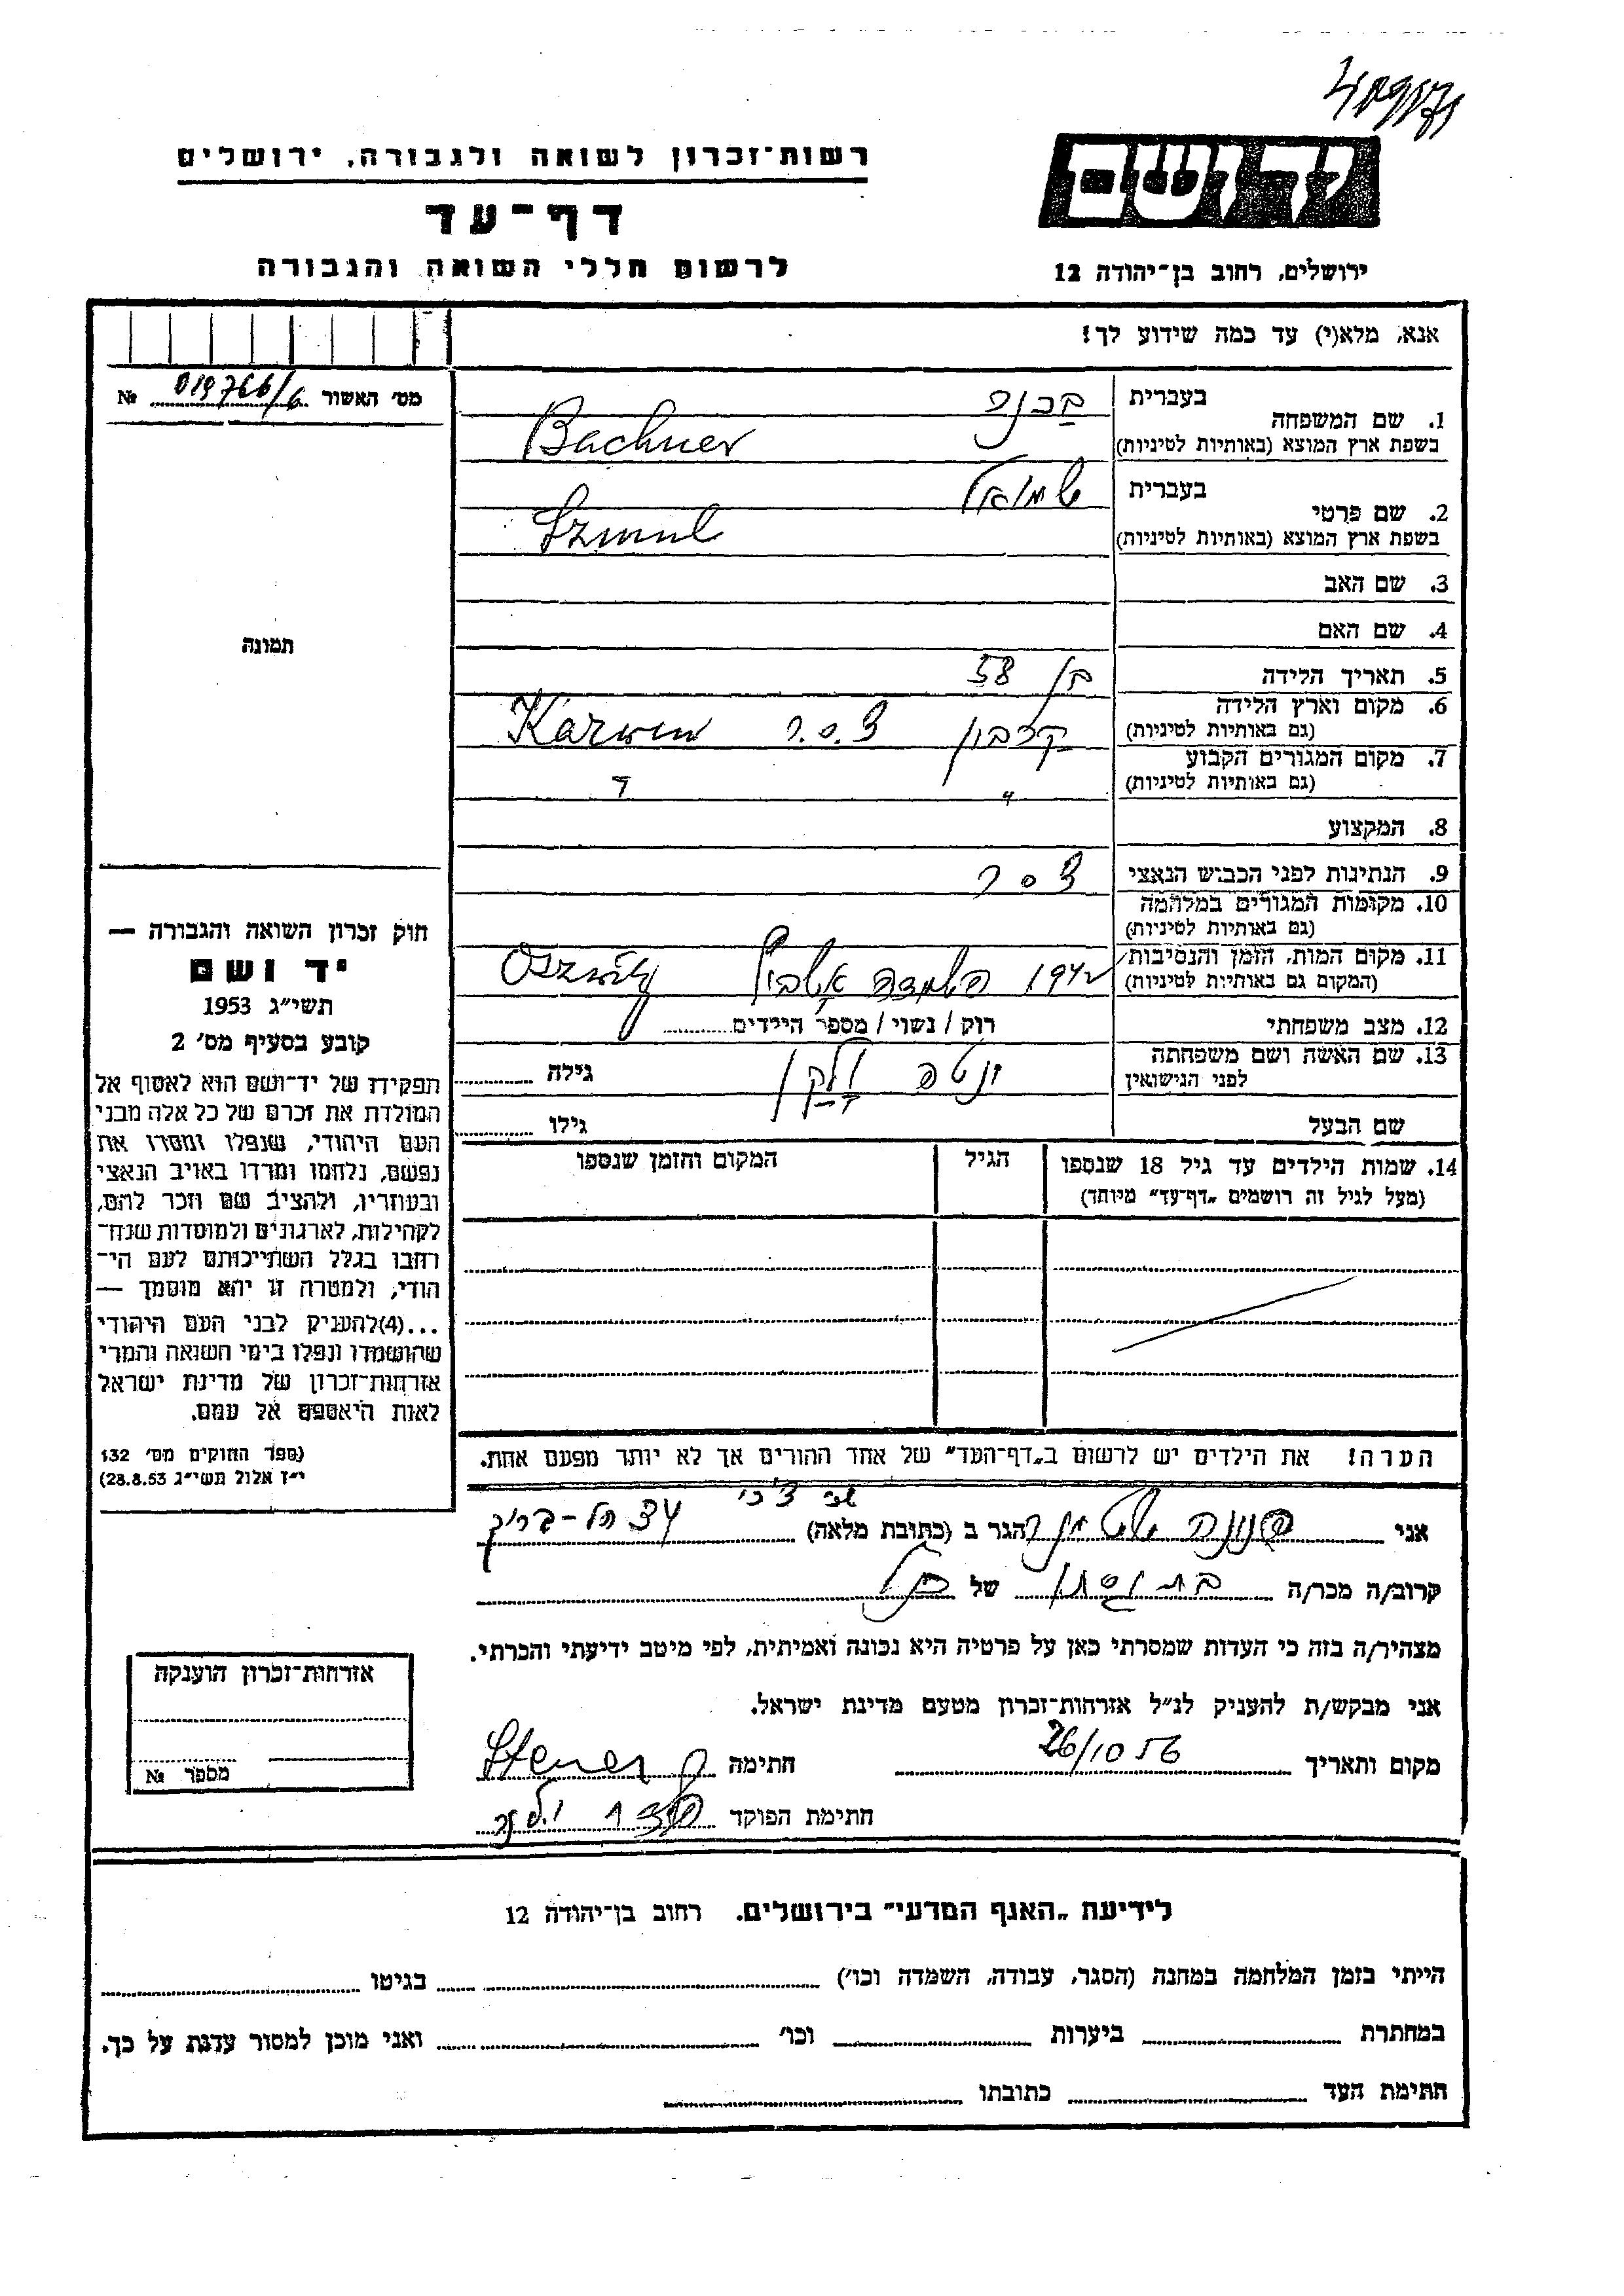 יד ושם
רשות־זכרון לשואה ולגבורה, ירושלים
דף־עד
לרשום חללי השואה והגבורה
ירושלים, רחוב בן־יהודה 12
אנא, מלא(י) עד כמה שידוע לך!
מס׳ האשור 019766/6 №
תמונה
1. שם המשפחה
בעברית בכנר
בשפת ארץ המוצא (באותיות לטיניות) Bachner
2. שם פרטי
בעברית שמואל
בשפת ארץ המוצא (באותיות לטיניות) Szmul
3. שם האב
4. שם האם
5. תאריך הלידה בן 58
6. מקום וארץ הלידה
(גם באותיות לטיניות) קרבין צ.ס.ר Karwin
7. מקום המגורים הקבוע
(גם באותיות לטיניות) "
8. המקצוע
9. הנתינות לפני הכבוש הנאצי צ ס ר
10. מקומות המגורים במלחמה
(גם באותיות לטיניות)
11. מקום המות, הזמן והנסיבות
(המקום גם באותיות לטיניות) 1942
12. מצב משפחתי רוק / נשוי / מספר הילדים
13. שם האשה ושם משפחתה
לפני הנישואין גילה
שם הבעל גילו
14. שמות הילדים עד גיל 18 שנספו
(מעל לגיל זה רושמים „דף־עד” מיוחד)
הגיל
המקום והזמן שנספו
הערה! את הילדים יש לרשום ב„דף־העד” של אחד ההורים אך לא יותר מפעם אחת.
חוק זכרון השואה והגבורה —
יד ושם
תשי״ג 1953
קובע בסעיף מס׳ 2
תפקידו של יד־ושם הוא לאסוף אל
המולדת את זכרם של כל אלה מבני
העם היהודי, שנפלו ומסרו את
נפשם, נלחמו ומרדו באויב הנאצי
ובעוזריו, ולהציב שם וזכר להם,
לקהילות, לארגונים ולמוסדות שנח־
רבו בגלל השתייכותם לעם הי־
הודי, ולמטרה זו יהא מוסמך —
...(4)להעניק לבני העם היהודי
שהושמדו ונפלו בימי השואה והמרי
אזרחות־זכרון של מדינת ישראל
לאות היאספם אל עמם.
(ספר החוקים מס׳ 132
י״ז אלול תשי״ג 28.8.53)
אני הגר ב (כתובת מלאה)
קרוב/ה מכר/ה של
מצהיר/ה בזה כי העדות שמסרתי כאן על פרטיה היא נכונה ואמיתית, לפי מיטב ידיעתי והכרתי.
אני מבקש/ת להעניק לנ״ל אזרחות־זכרון מטעם מדינת ישראל.
מקום ותאריך 26/10 56 חתימה
חתימת הפוקד
אזרחות־זכרון הוענקה
מספר №
לידיעת „האגף המדעי” בירושלים. רחוב בן־יהודה 12
הייתי בזמן המלחמה במחנה (הסגר, עבודה, השמדה וכו׳) בגיטו
במחתרת ביערות וכו׳ ואני מוכן למסור עדות על כך.
חתימת העד כתובתו